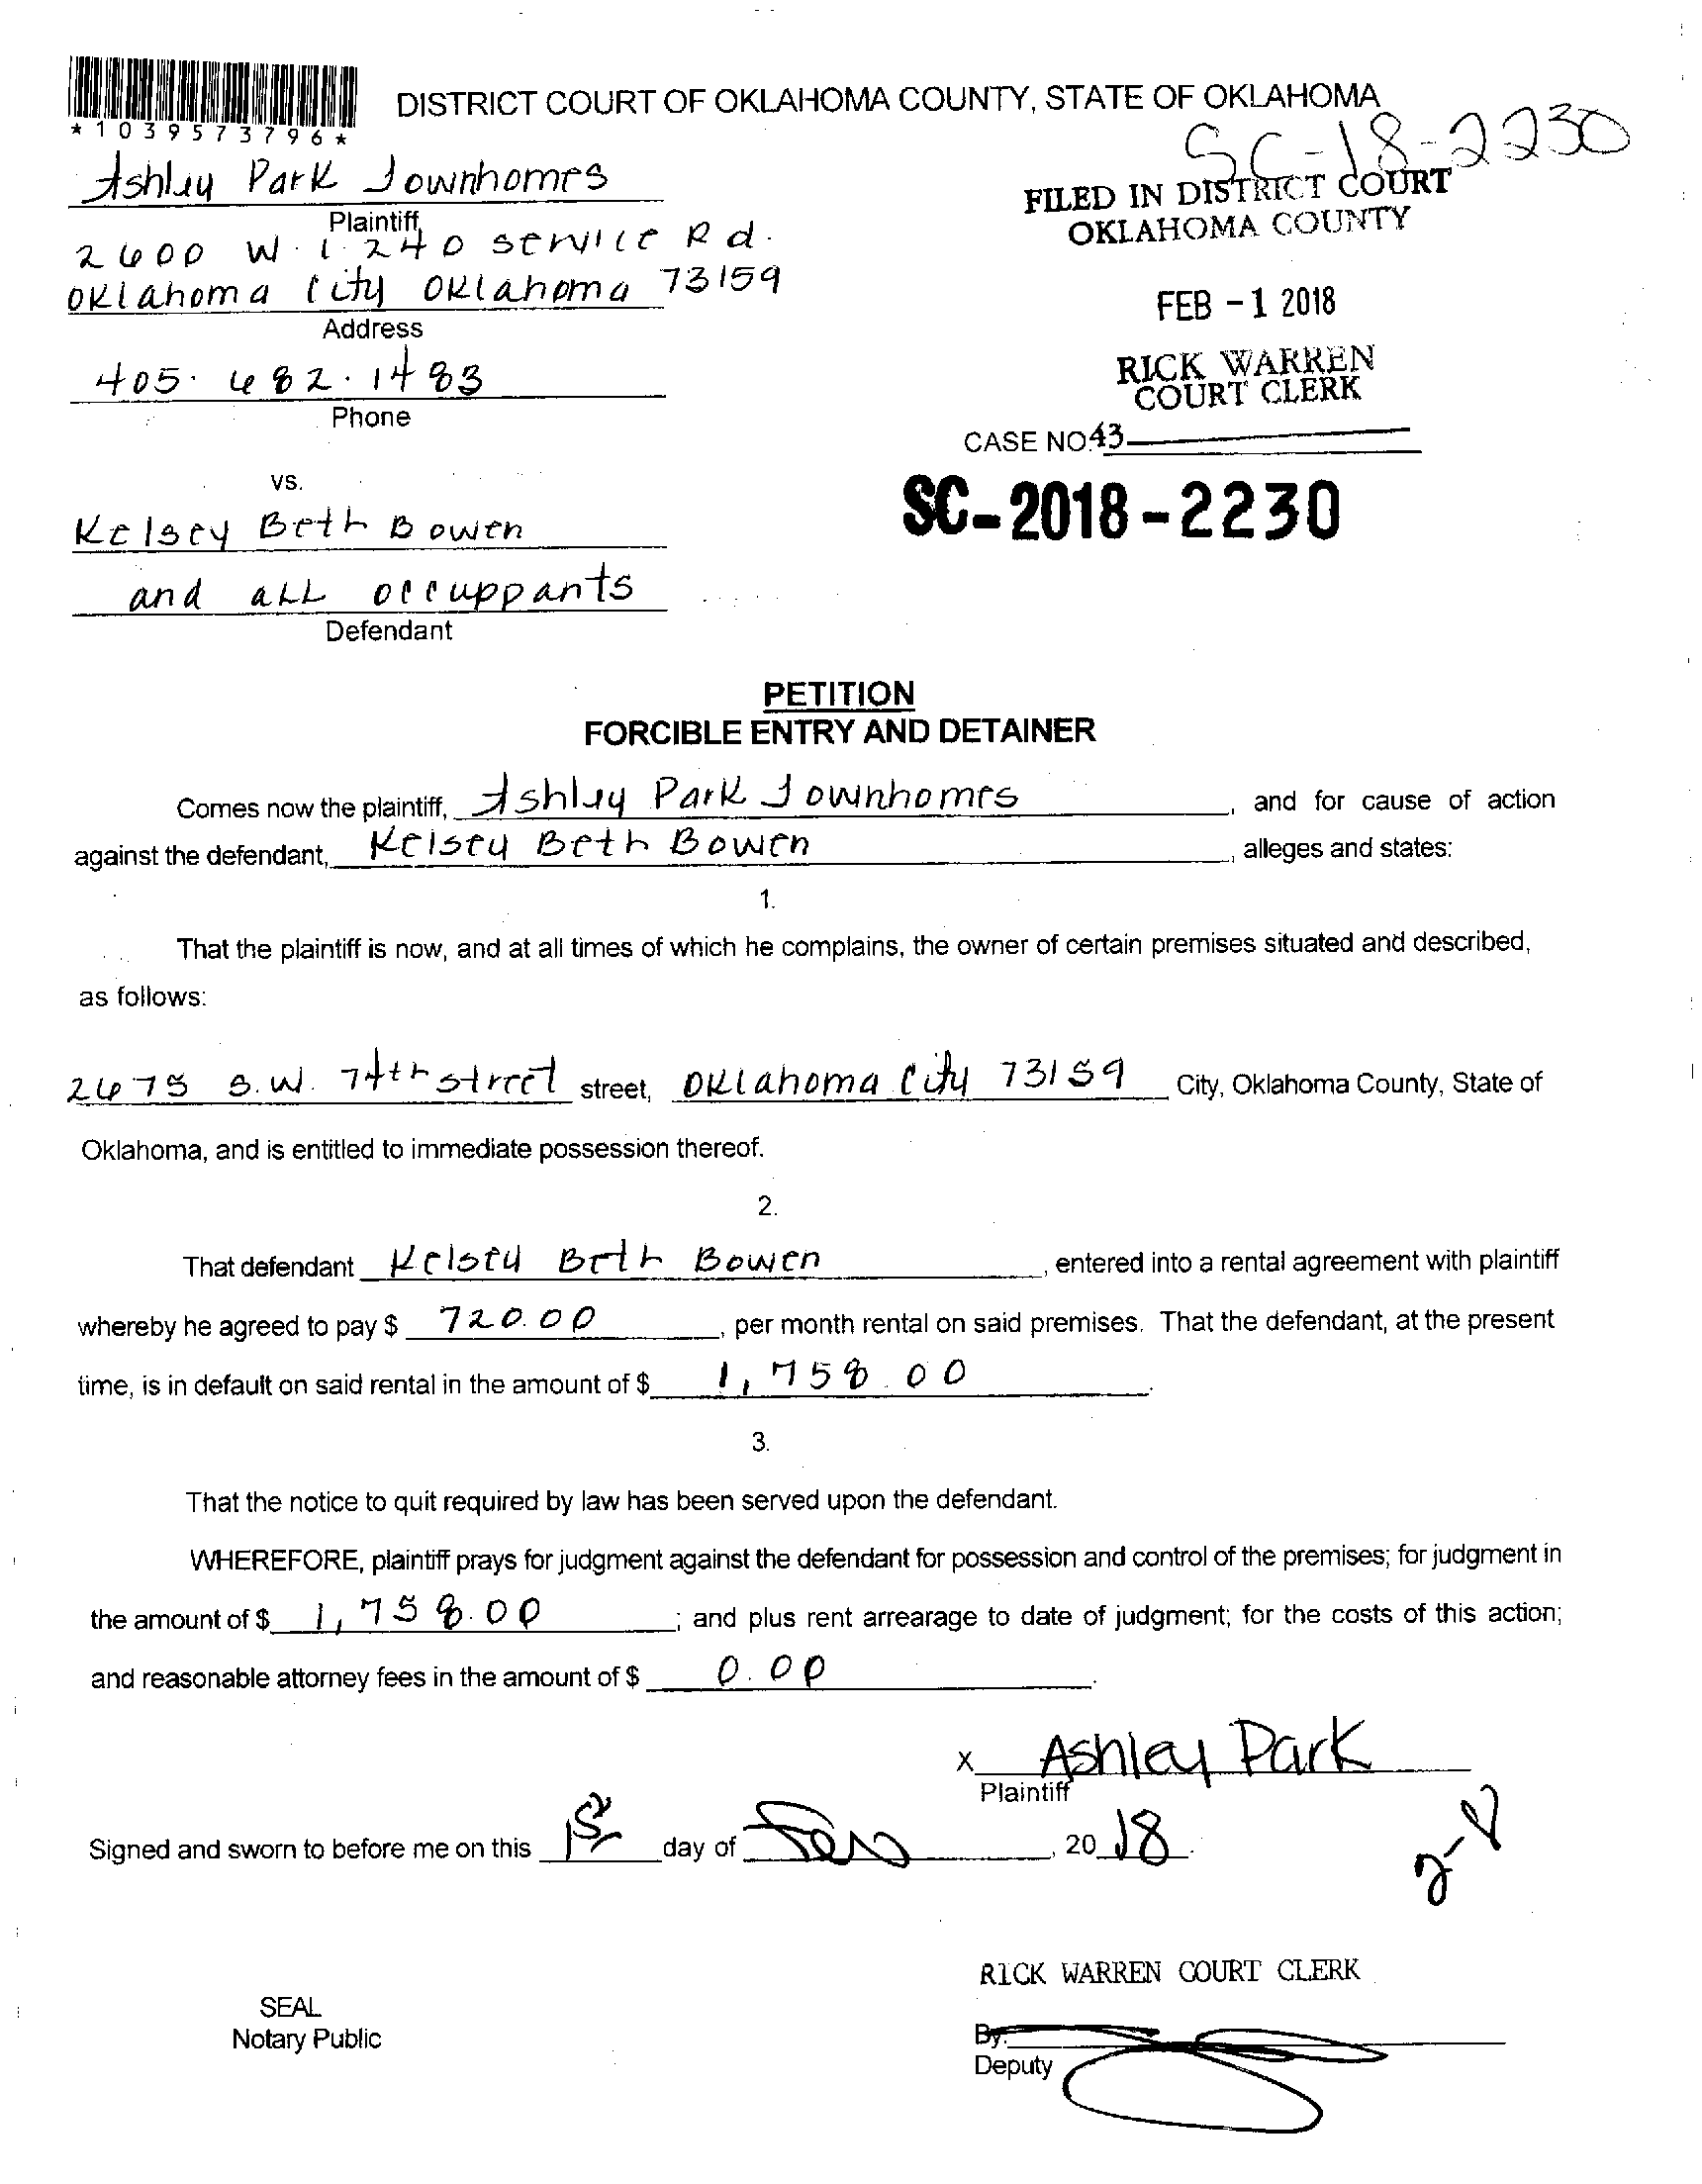 *1039573796*
DISTRICT COURT OF OKLAHOMA COUNTY, STATE OF OKLAHOMA
SC-18-2230
Ashley Park Townhomes
Plaintiff
FILED IN DISTRICT COURT
OKLAHOMA COUNTY
2600 W. I 240 service Rd.
Oklahoma City Oklahoma 73159
Address
FEB -1 2018
405. 682. 1483
Phone
RICK WARREN
COURT CLERK
CASE NO. 43
vs.
SC-2018-2230
Kelsey Beth Bowen
and all occuppants
Defendant
PETITION
FORCIBLE ENTRY AND DETAINER
Comes now the plaintiff, Ashley Park Townhomes, and for cause of action
against the defendant, Kelsey Beth Bowen, alleges and states:
1.
That the plaintiff is now, and at all times of which he complains, the owner of certain premises situated and described,
as follows:
2675 S.W. 74th street street, Oklahoma City 73159 City, Oklahoma County, State of
Oklahoma, and is entitled to immediate possession thereof.
2.
That defendant Kelsey Beth Bowen, entered into a rental agreement with plaintiff
whereby he agreed to pay $ 720.00, per month rental on said premises. That the defendant, at the present
time, is in default on said rental in the amount of $ 1,758.00.
3.
That the notice to quit required by law has been served upon the defendant.
WHEREFORE, plaintiff prays for judgment against the defendant for possession and control of the premises; for judgment in
the amount of $ 1,758.00; and plus rent arrearage to date of judgment; for the costs of this action;
and reasonable attorney fees in the amount of $ 0.00.
X Ashley Park
Plaintiff
Signed and sworn to before me on this 1st day of , 20 18.
RICK WARREN COURT CLERK
SEAL
Notary Public
By:
Deputy